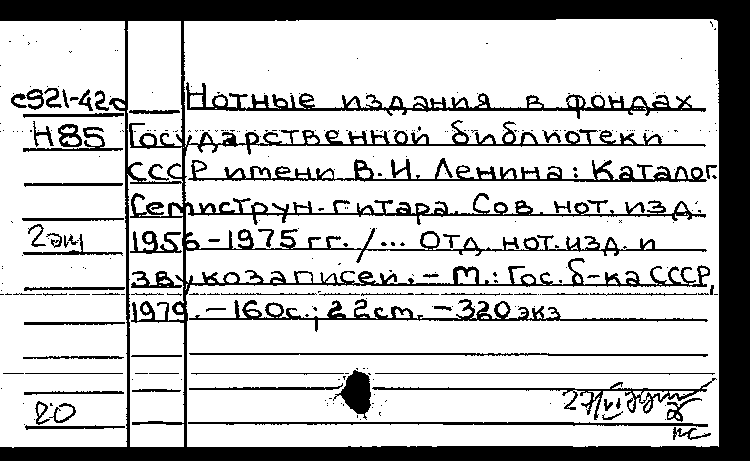 с921-42с Нотные издания в фондах
Н85 Государственной библиотеки
СССР имени В.И. Ленина: Каталог.
Семиструн. гитара. Сов. нот. изд.
1956-1975 гг. /... Отд. нот. изд. и
звукозаписей. - М.: Гос. б-ка СССР,
1979. - 160с.; 22 см. - 320 экз
20